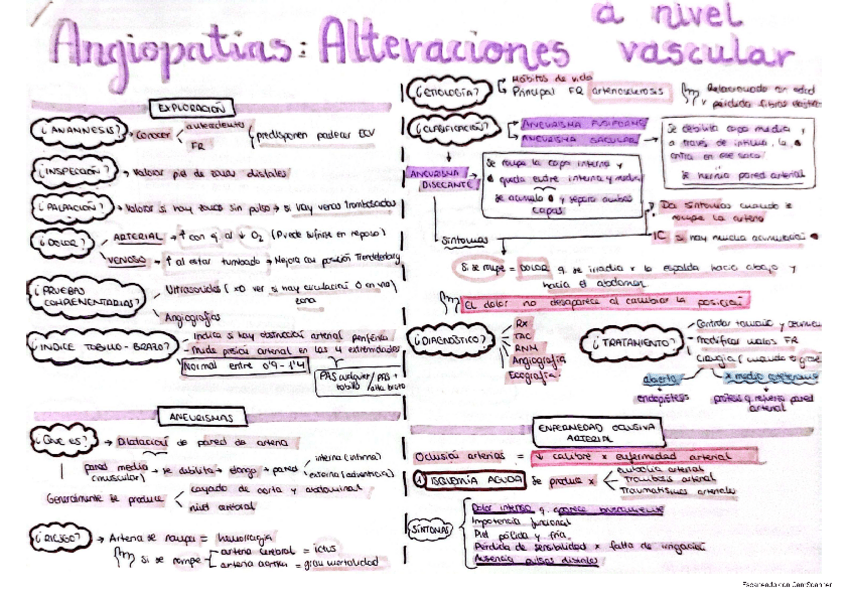 Angiopatias: Alteraciones a nivel vascular
EXPLORACIÓN
¿ANAMNESIS? → Conocer
antecedentes
FR
predisponen padecer ECV
¿INSPECCIÓN? → Valorar piel de zonas distales
¿PALPACIÓN? → Valorar si hay zonas sin pulso → si hay venas trombosadas
¿DOLOR?
ARTERIAL → ↑ con ej al ↓ O₂ (Puede sufrirse en reposo)
VENOSO → ↑ al estar tumbado → Mejora con posición Trendelenburg
¿PRUEBAS COMPLEMENTARIAS?
Ultrasonidos (xa ver si hay circulación o en una zona
Angiografías
¿INDICE TOBILLO-BRAZO?
- Indica si hay obstrucción arterial periférica
- Mide presión arterial en las 4 extremidades
Normal entre 0'9 - 1'4
PAS cualquier tobillo / PAS + alta brazo
ANEURISMAS
¿QUE ES? → Dilatación de pared de arteria
pared media (muscular) → se debilita → elonga → pared
interna (íntima)
externa (adventicia)
Generalmente se produce
cayado de aorta y abdominal
nivel cerebral
¿RIESGO? → Arteria se rompa = hemorragia
Si se rompe
arteria cerebral = ictus
arteria aorta = gran mortalidad
¿ETIOLOGÍA?
Hábitos de vida
Principal FR arteriosclerosis
Relacionado con edad
x pérdida fibras elásticas
¿CLASIFICACIÓN?
ANEURISMA FUSIFORME
ANEURISMA SACULAR
Se debilita capa media y
a través de íntima, la
entra en ese saco
Se hernia pared arterial
ANEURISMA DISECANTE
Se rompe la capa interna y
queda entre interna y media
Se acumula y separa ambas
capas
Síntomas
Da síntomas cuando se
rompe la arteria
IC si hay mucha acumulación
Si se rompe = DOLOR q se irradia x la espalda hacia abajo y
hacia el abdomen
El dolor no desaparece al cambiar la posición
¿DIAGNÓSTICO?
Rx
TAC
RNM
Angiografía
Ecografía
¿TRATAMIENTO?
- Controlar tamaño y
- Modificar malos FR
- Cirugía (cuando es grave
abierta
endoprótesis
x medio
prótesis q refuerza pared
arterial
ENFERMEDAD OCLUSIVA ARTERIAL
Oclusión arterias = ↓ calibre x enfermedad arterial
1 ISQUEMIA AGUDA Se produce x
Embolia arterial
Trombosis arterial
Traumatismos arteriales
SÍNTOMAS
Dolor intenso q aparece bruscamente
Impotencia funcional
Piel pálida y fría
Pérdida de sensibilidad x falta de irrigación
Ausencia pulsos distales
Escaneado con CamScanner